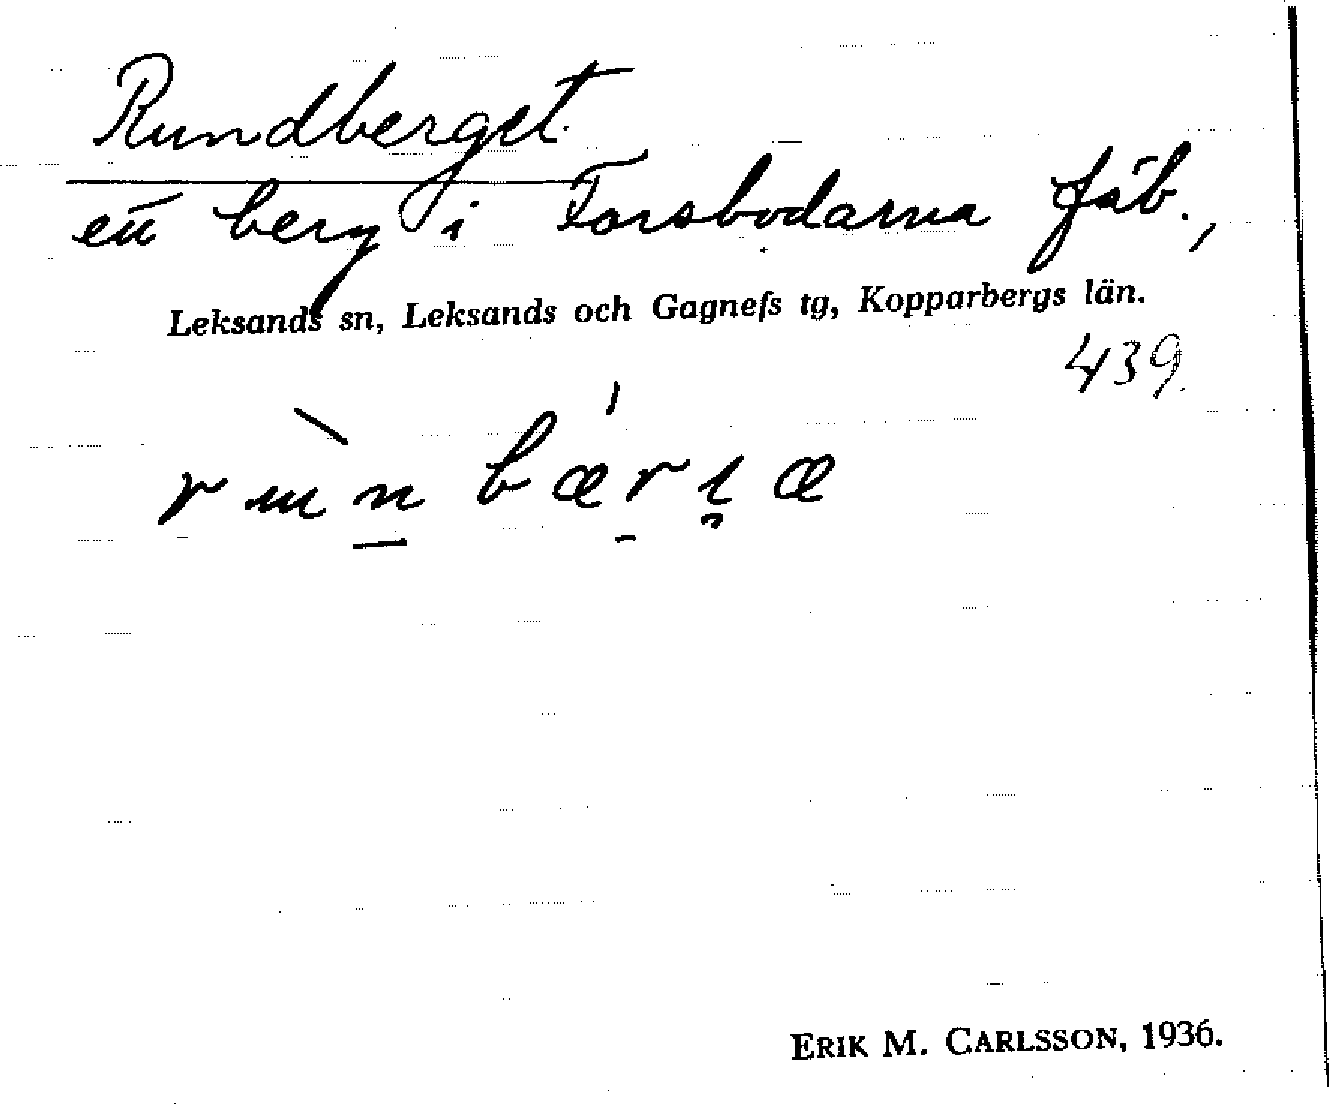 Rundberget.
ett berg i Forsbodarna fäb.,
Leksands sn, Leksands och Gagnefs tg, Kopparbergs län.
439.
ERIK M. CARLSSON, 1936.